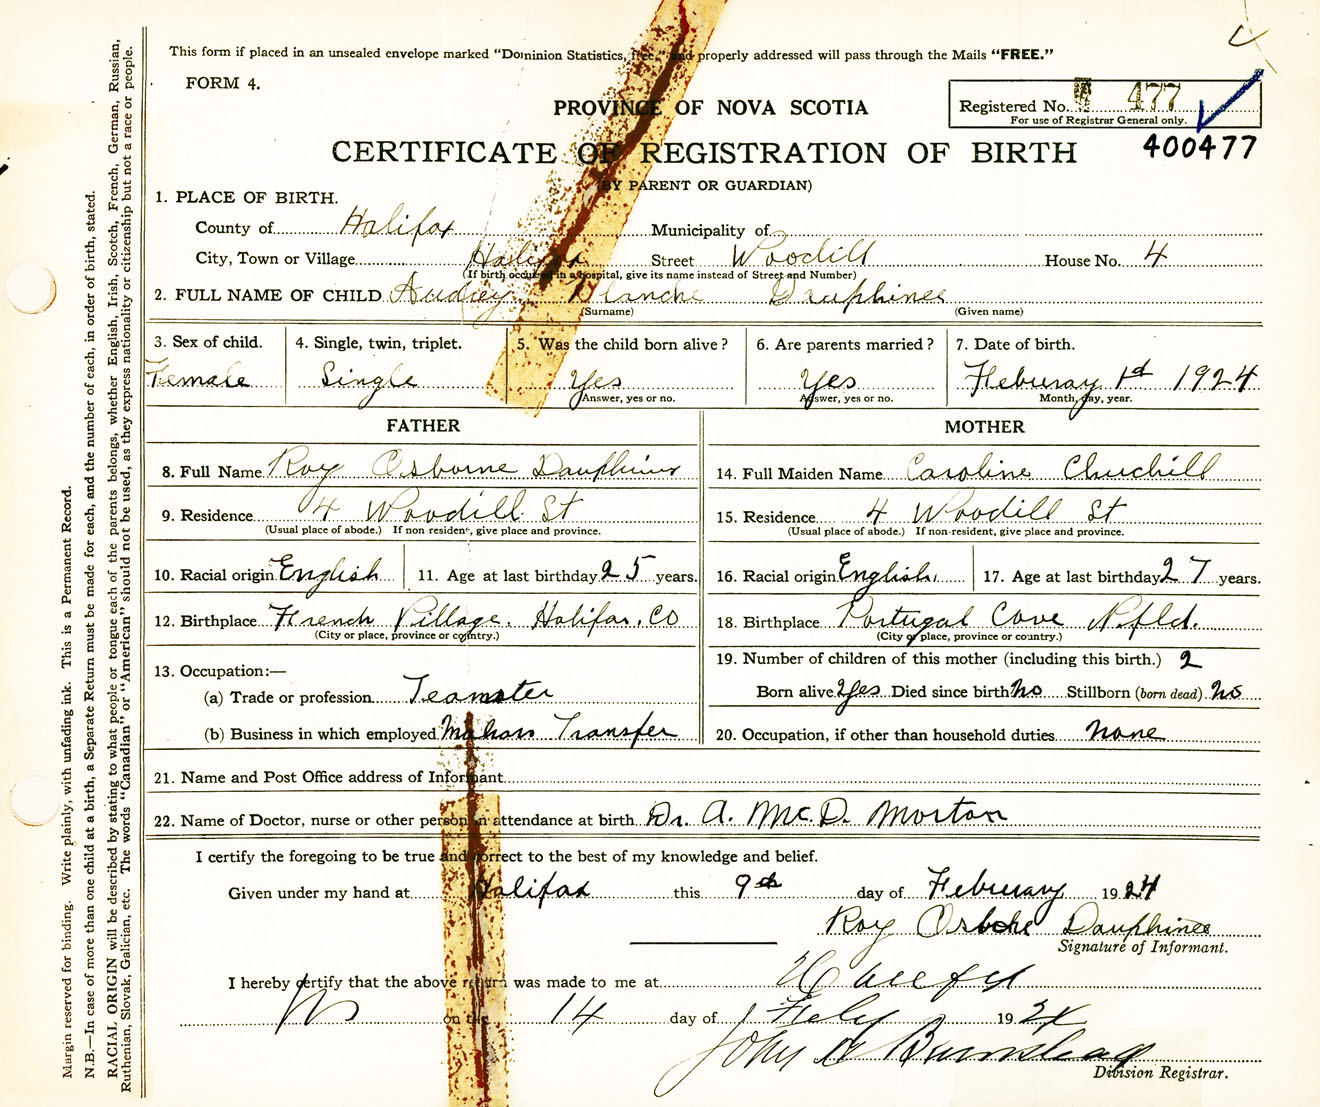 This form if placed in an unsealed envelope marked "Dominion Statistics, free," and properly addressed will pass through the Mails "FREE."
FORM 4.
PROVINCE OF NOVA SCOTIA
Registered No. 477
For use of Registrar General only.
400477
CERTIFICATE OF REGISTRATION OF BIRTH
(BY PARENT OR GUARDIAN)
1. PLACE OF BIRTH.
County of Halifax Municipality of
City, Town or Village Halifax Street Woodill House No. 4
(If birth occurred in a hospital, give its name instead of Street and Number)
2. FULL NAME OF CHILD Audrey Blanche Dauphinee
(Surname) (Given name)
3. Sex of child. 4. Single, twin, triplet. 5. Was the child born alive? 6. Are parents married? 7. Date of birth.
Female Single Yes Yes Feburay 1st 1924
Answer, yes or no. Answer, yes or no. Month, day, year.
FATHER MOTHER
8. Full Name Roy Osborne Dauphinee 14. Full Maiden Name Caroline Churchill
9. Residence 4 Woodill St 15. Residence 4 Woodill St
(Usual place of abode.) If non-resident, give place and province. (Usual place of abode.) If non-resident, give place and province.
10. Racial origin English 11. Age at last birthday 25 years. 16. Racial origin English. 17. Age at last birthday 27 years.
12. Birthplace French Village. Halifax. Co 18. Birthplace Portugal Cove Nfld.
(City or place, province or country.) (City or place, province or country.)
19. Number of children of this mother (including this birth.) 2
13. Occupation:—
(a) Trade or profession Teamster Born alive Yes Died since birth no Stillborn (born dead) no
(b) Business in which employed Transfer 20. Occupation, if other than household duties none
21. Name and Post Office address of Informant
22. Name of Doctor, nurse or other person in attendance at birth Dr. A. McD. Morton
I certify the foregoing to be true and correct to the best of my knowledge and belief.
Given under my hand at Halifax this 9th day of Feburay 1924
Roy Osborne Dauphinee
Signature of Informant.
I hereby certify that the above return was made to me at Halifax
NS on the 14 day of Feby 1924
John A
Division Registrar.
Margin reserved for binding. Write plainly, with unfading ink. This is a Permanent Record.
N.B.—In case of more than one child at a birth, a Separate Return must be made for each, and the number of each, in order of birth, stated.
RACIAL ORIGIN will be described by stating to what people or tongue each of the parents belongs, whether English, Irish, Scotch, French, German, Russian,
Ruthenian, Slovak, Galician, etc. The words "Canadian" or "American" should not be used, as they express nationality or citizenship but not a race or people.